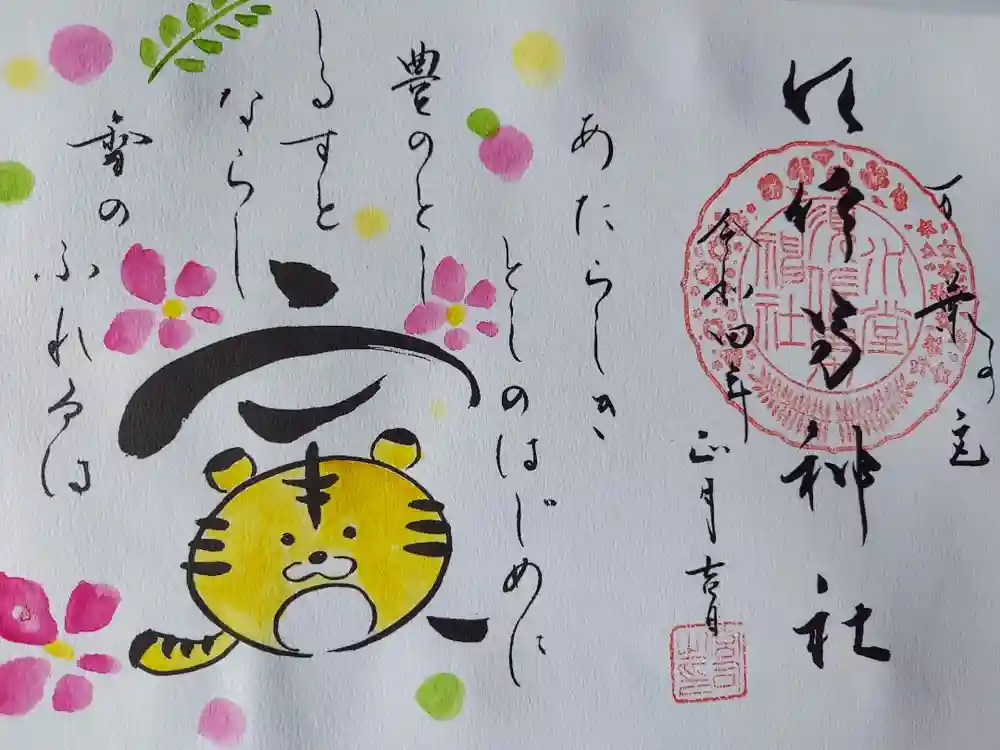 神社
令和四年
正月吉日
あたらしき
としのはじめに
豊のとし
しるすと
ならし
雪の
ふれるは